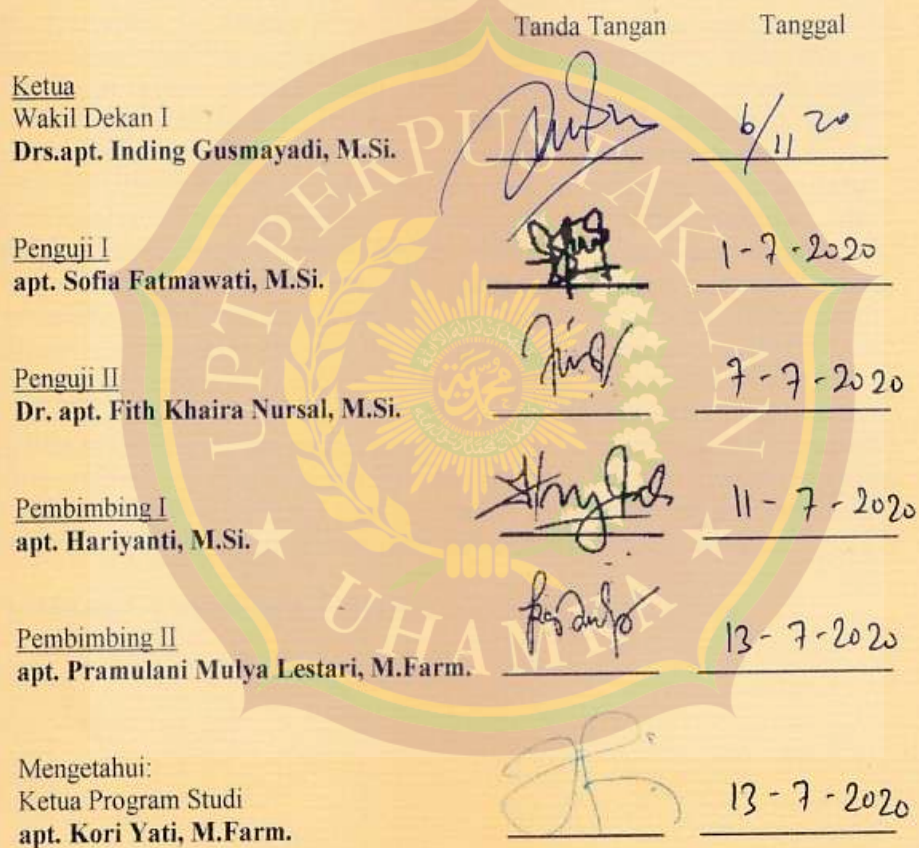 Tanda Tangan Tanggal
Ketua
Wakil Dekan I
Drs.apt. Inding Gusmayadi, M.Si. 6/11 20
Penguji I
apt. Sofia Fatmawati, M.Si. 1-7-2020
Penguji II
Dr. apt. Fith Khaira Nursal, M.Si. 7-7-2020
Pembimbing I
apt. Hariyanti, M.Si. 11-7-2020
Pembimbing II
apt. Pramulani Mulya Lestari, M.Farm. 13-7-2020
Mengetahui:
Ketua Program Studi
apt. Kori Yati, M.Farm. 13-7-2020
UPT PERPUSTAKAAN
UHAMKA